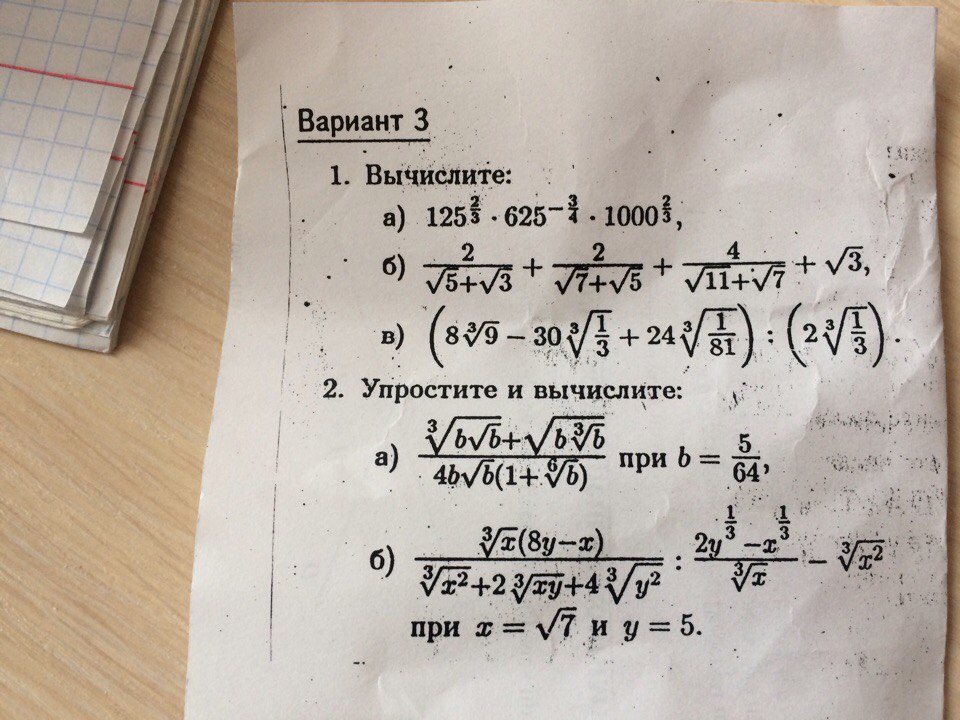 Вариант 3
1. Вычислите:
а) 125^{2/3} · 625^{-3/4} · 1000^{2/3},
б) 2/(√5+√3) + 2/(√7+√5) + 4/(√11+√7) + √3,
в) (8∛9 − 30∛(1/3) + 24∛(1/81)) : (2∛(1/3)).
2. Упростите и вычислите:
а) (∛(b√b)+√(b∛b))/(4b√b(1+⁶√b)) при b = 5/64,
б) (∛x(8y−x))/(∛(x²)+2∛(xy)+4∛(y²)) : (2y^{1/3}−x^{1/3})/∛x − ∛(x²)
при x = √7 и y = 5.